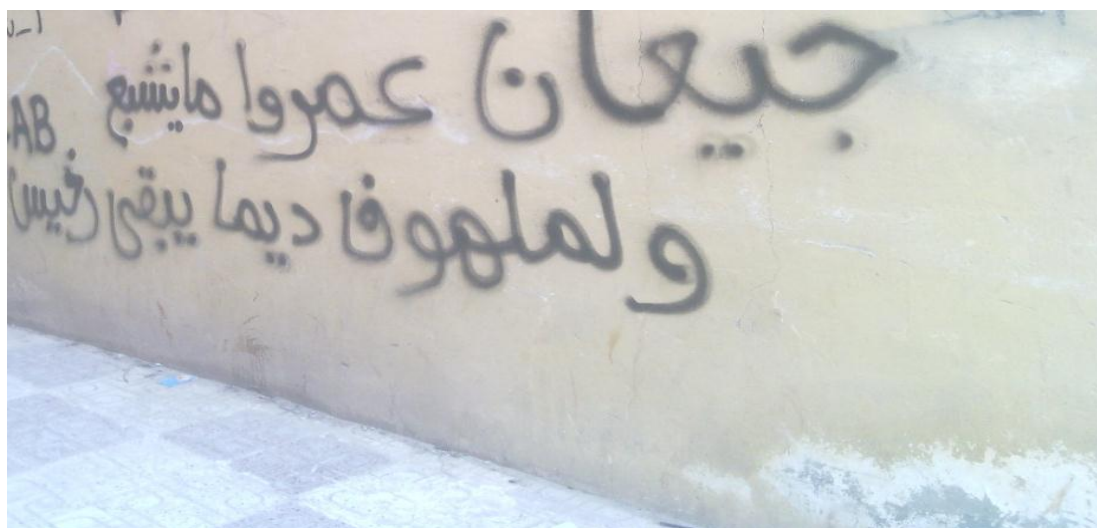 جيعان عمروا مايشبع
ولملهوف ديما يبقى رخيس
AB